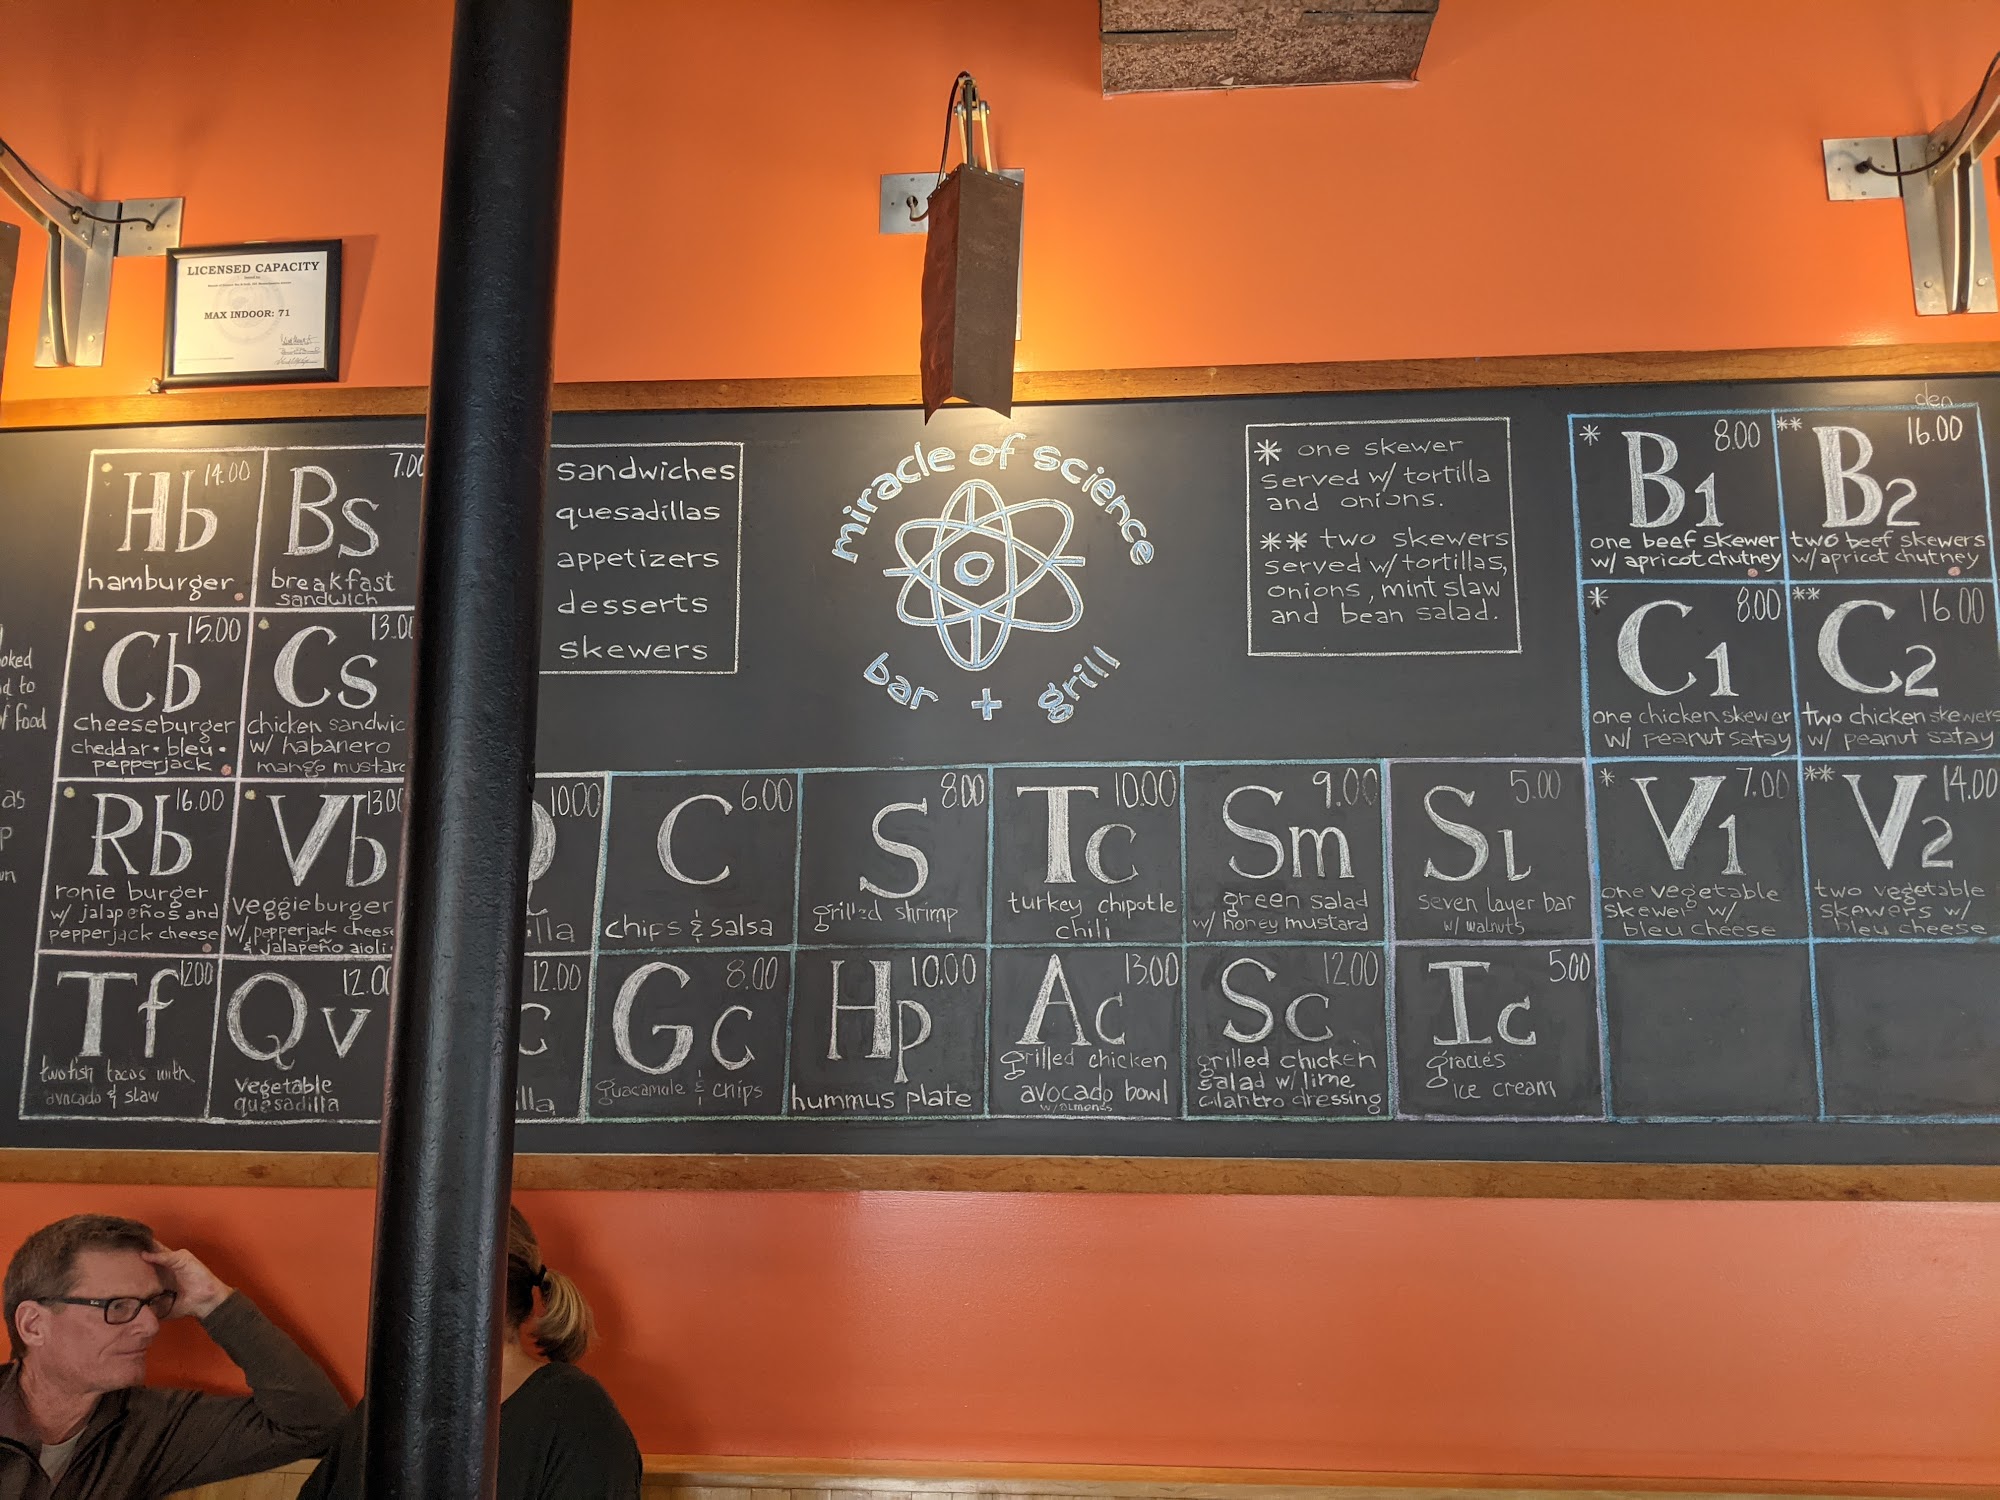 LICENSED CAPACITY
MAX INDOOR: 71
ooked
d to
f food
as
Hb 14.00
hamburger
Bs 7.00
breakfast
sandwich
Cb 15.00
cheeseburger
cheddar • bleu •
pepperjack
Cs 13.00
chicken sandwic
w/ habanero
mango mustard
Rb 16.00
ronie burger
w/ jalapeños and
pepperjack cheese
Vb 13.00
veggieburger
w/ pepperjack cheese
& jalapeño aioli
Tf 12.00
two fish tacos with
avocado & slaw
Qv 12.00
vegetable
quesadilla
sandwiches
quesadillas
appetizers
desserts
skewers
miracle of science
bar + grill
* one skewer
served w/ tortilla
and onions.
** two skewers
served w/ tortillas,
onions, mint slaw
and bean salad.
10.00
illa
12.00
c
illa
C 6.00
chips & salsa
S 8.00
grilled shrimp
Tc 10.00
turkey chipotle
chili
Sm 9.00
green salad
w/ honey mustard
Sl 5.00
seven layer bar
w/ walnuts
Gc 8.00
guacamole & chips
Hp 10.00
hummus plate
Ac 13.00
grilled chicken
avocado bowl
w/ almonds
Sc 12.00
grilled chicken
salad w/ lime
cilantro dressing
Ic 5.00
gracie's
ice cream
* B1 8.00
one beef skewer
w/ apricot chutney
** B2 16.00
two beef skewers
w/ apricot chutney
* C1 8.00
one chicken skewer
w/ peanut satay
** C2 16.00
two chicken skewers
w/ peanut satay
* V1 7.00
one vegetable
skewer w/
bleu cheese
** V2 14.00
two vegetable
skewers w/
bleu cheese